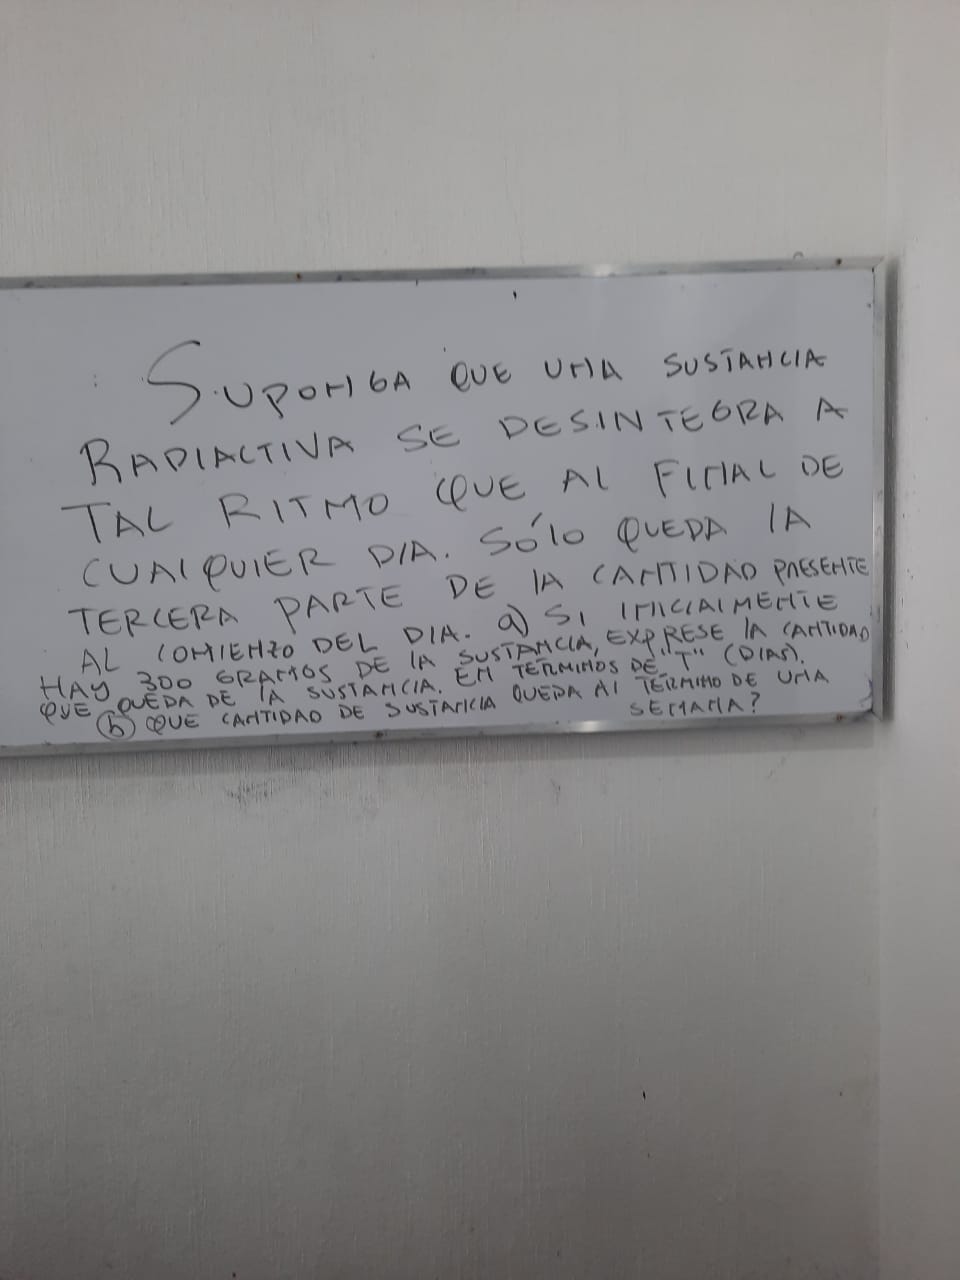 SUPONGA QUE UNA SUSTANCIA
RADIACTIVA SE DESINTEGRA A
TAL RITMO QUE AL FINAL DE
CUALQUIER DIA. SÓLO QUEDA LA
TERCERA PARTE DE LA CANTIDAD PRESENTE
AL COMIENZO DEL DIA. a) SI INICIALMENTE
HAY 300 GRAMOS DE LA SUSTANCIA, EXPRESE LA CANTIDAD
QUE QUEDA DE LA SUSTANCIA. EN TÉRMINOS DE "T" (DIAS).
b) QUE CANTIDAD DE SUSTANCIA QUEDA AL TÉRMINO DE UNA
SEMANA?